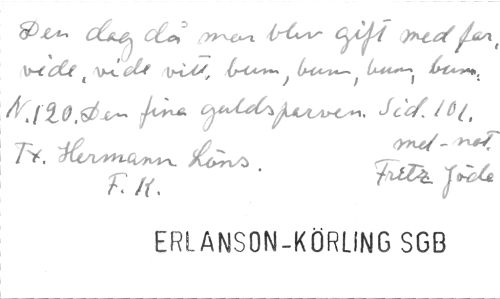 Den dag då mor blev gift med far,
vide, vide vitt, bum, bum, bum, bum.
N. 120. Den fina guldsparven. Sid. 101.
Tx. Hermann Löns. mel-not.
F. K. Fritz Jöde
ERLANSON-KÖRLING SGB